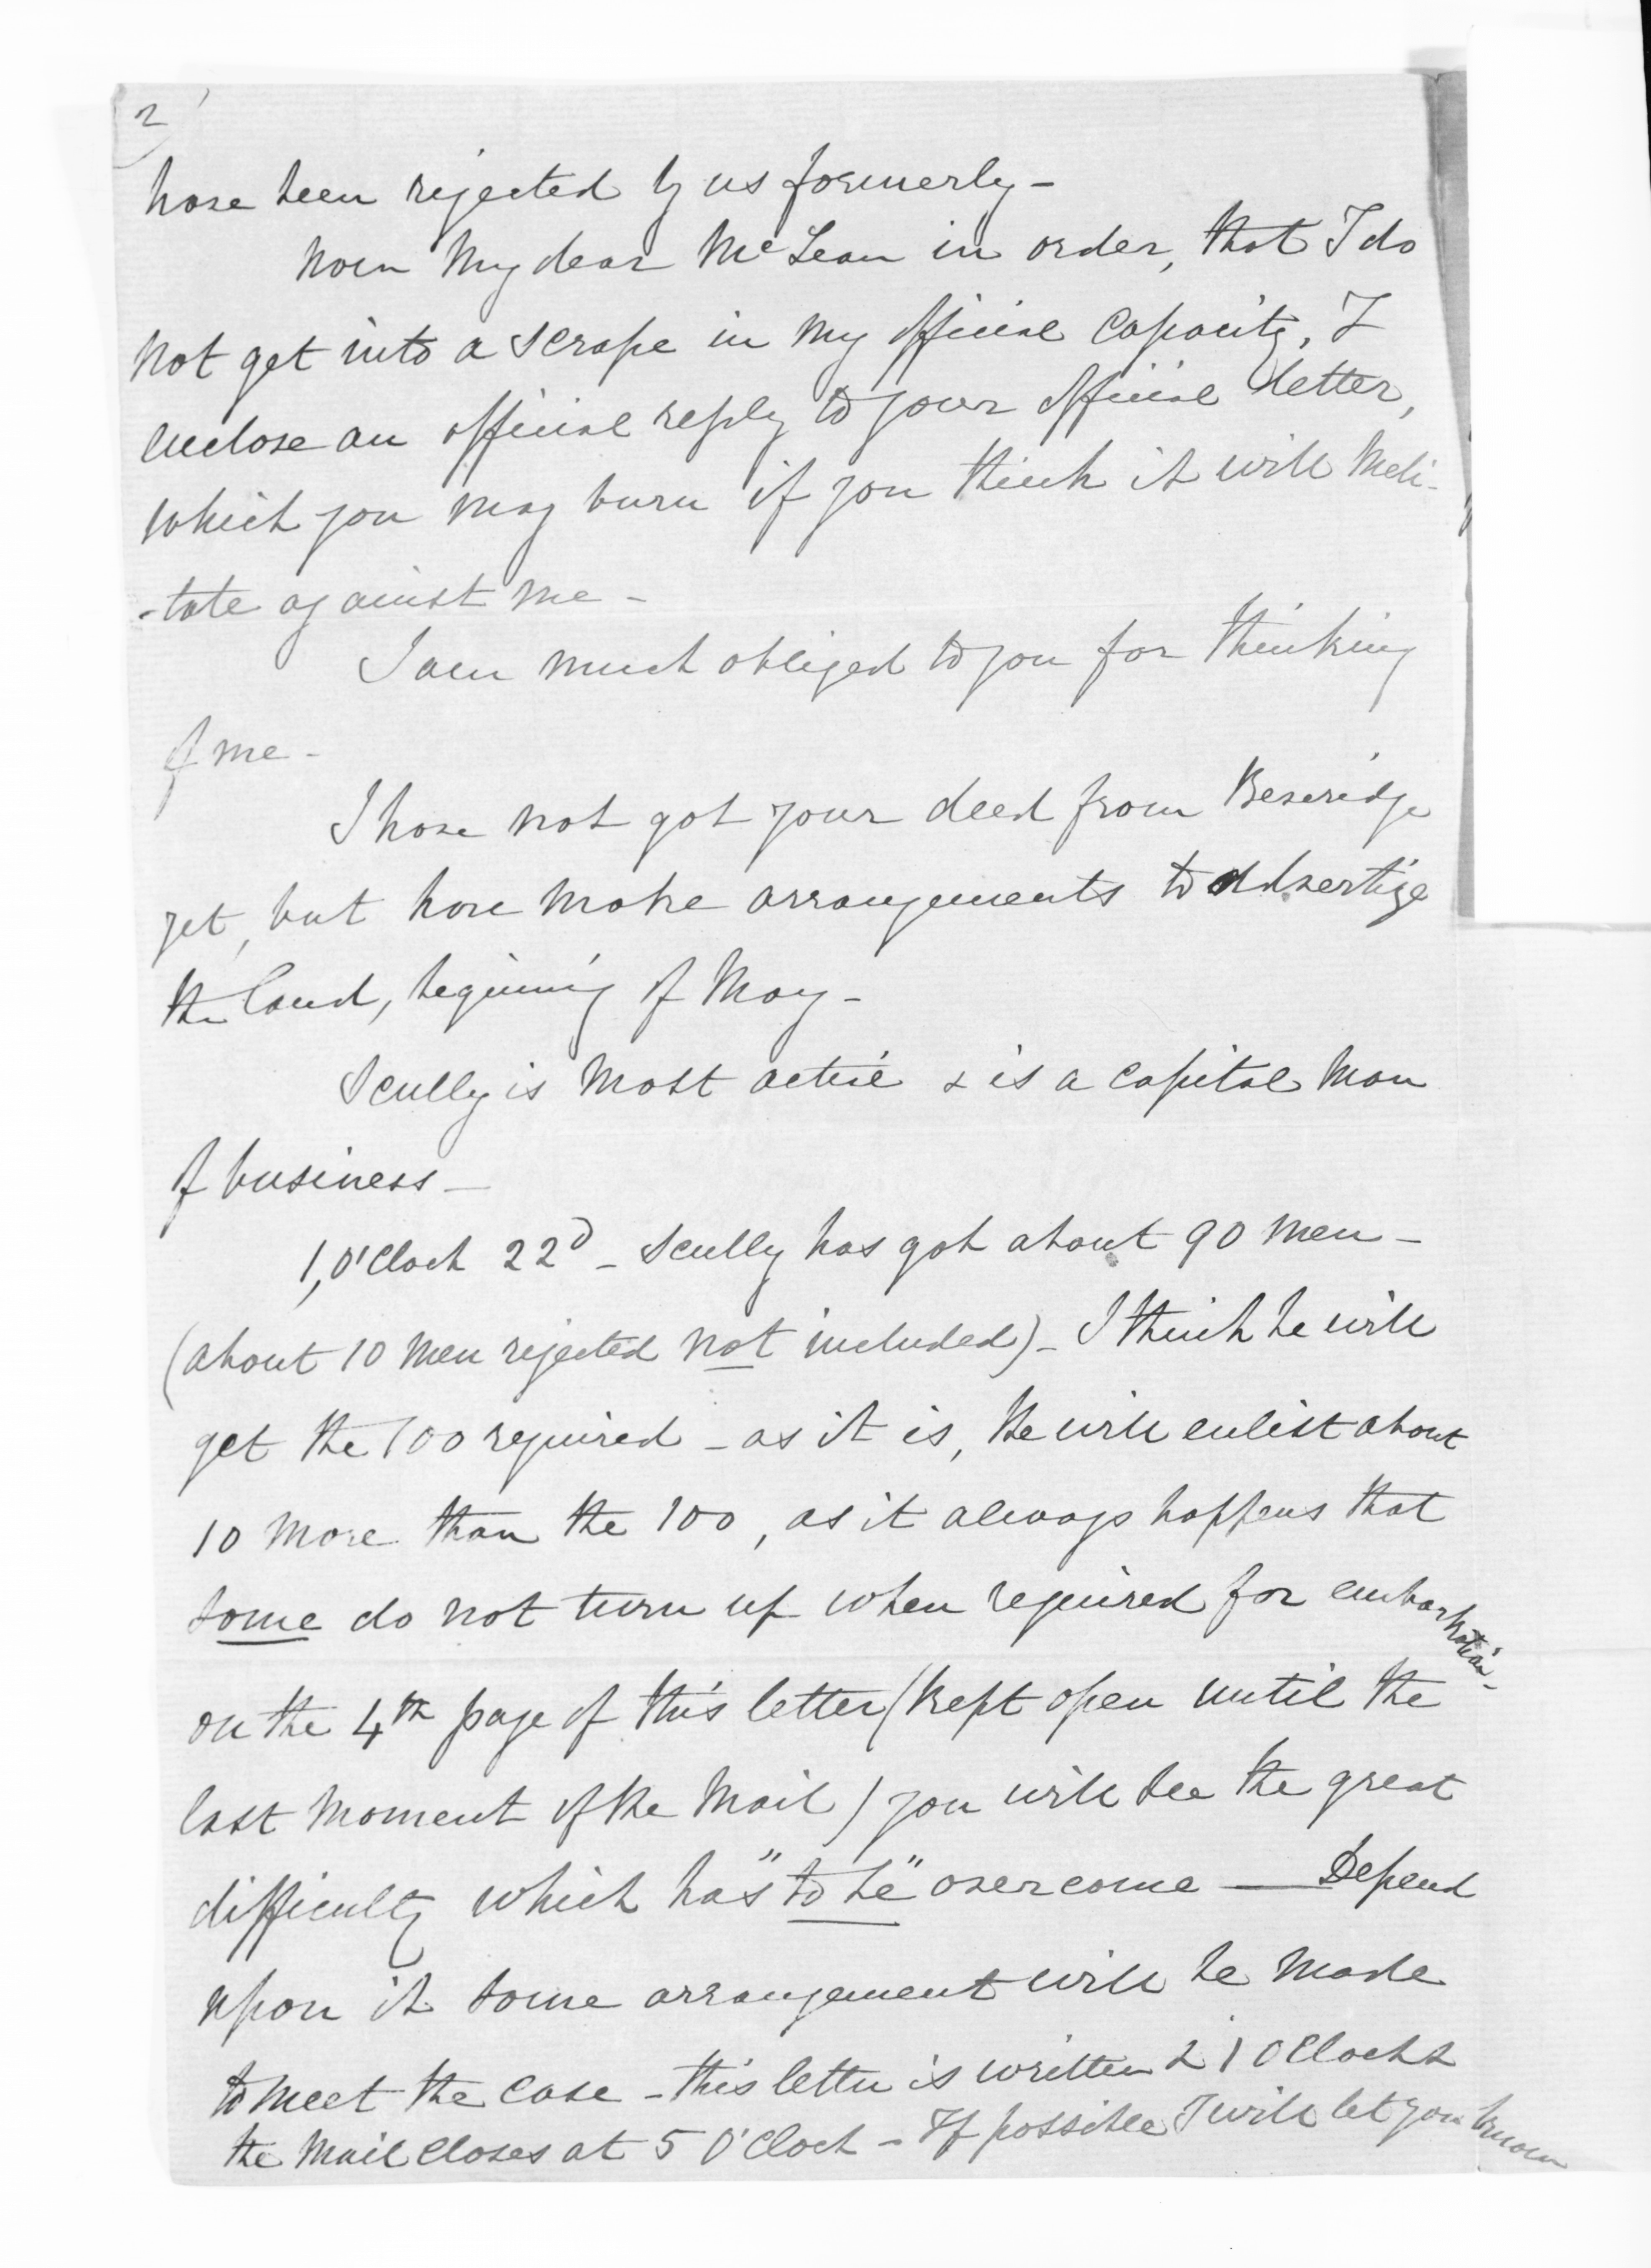 2
have been rejected by us formerly -
Now My dear McLean in order, that I do
not get into a scrape in my official Capacity, I
enclose an official reply to your official letter,
which you may burn if you think it will Meli-
-tate against me -
I am much obliged to you for thinking
of me -
I have not got your deed from Beveridge
yet, but have make arrangements to Advertize
the land, beginning of May -
Scully is most active & is a capital Man
of business -
1, O'Clock 22d - Scully has got about 90 men -
(about 10 men rejected not included) - I think he will
get the 100 required - as it is, he will enlist about
10 more than the 100, as it always happens that
some do not turn up when required for embarkation -
on the 4th page of this letter (kept open until the
last moment of the Mail) you will see the great
difficulty which has "to be" overcome — Depend
upon it some arrangement will be made
to meet the case - this letter is written 1 OClock &
the Mail closes at 5 O'Clock - If possible I will let you know